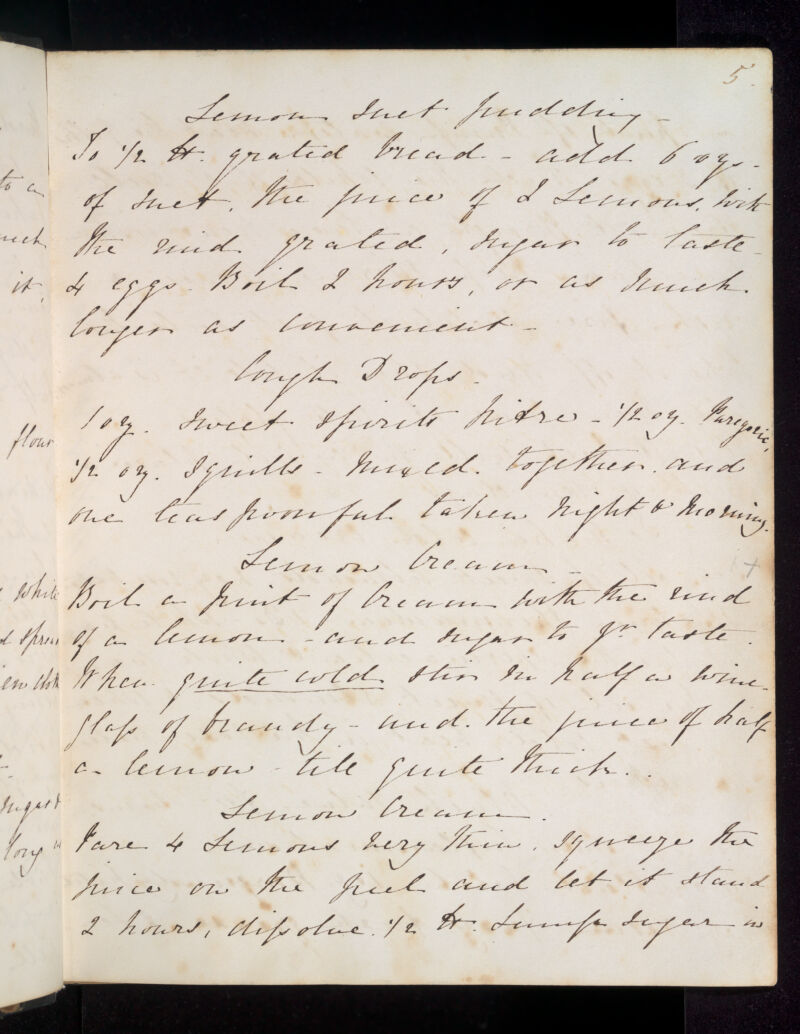 5.
Lemon Suet pudding -
To 1/2 lb. grated bread - add 6 ozs -
of suet, the juice of 2 Lemons, with
the rind grated, sugar to taste -
4 eggs - Boil 2 hours, or as much
longer as convenient -
Cough Drops -
1 oz. sweet spirits Nitre - 1/2 oz. Paregoric,
1/2 oz. Squills - Mixed together and
one teaspoonful taken night & morning.
Lemon Cream -
Boil a pint of Cream with the rind
of a lemon - and sugar to yr taste.
When quite cold stir in half a wine
glass of brandy - and the juice of half
a lemon till quite thick..
Lemon Cream.
Pare 4 Lemons very thin, squeeze the
juice on the peel and let it stand
2 hours, dissolve 1/2 lb. Lump Sugar in
to a
it,
flour
white
sugar
long